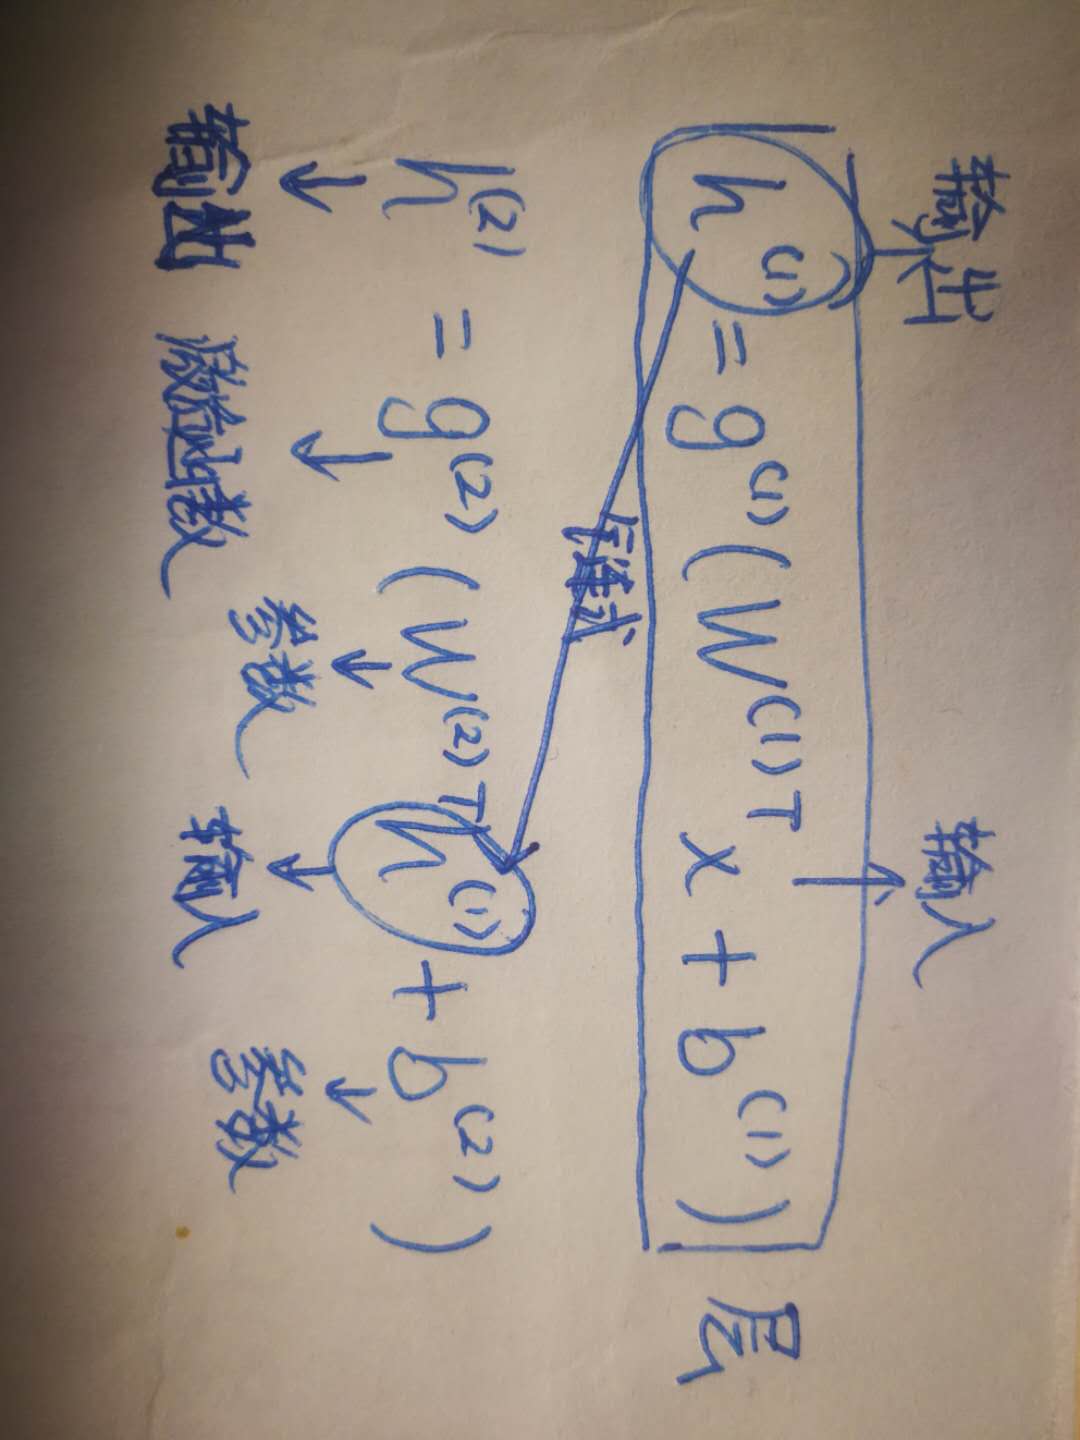 输出 输入
h⁽¹⁾ = g⁽¹⁾(W⁽¹⁾ᵀ x + b⁽¹⁾) 层
链式
h⁽²⁾ = g⁽²⁾(W⁽²⁾ᵀ h⁽¹⁾ + b⁽²⁾)
输出 激活函数 参数 输入 参数